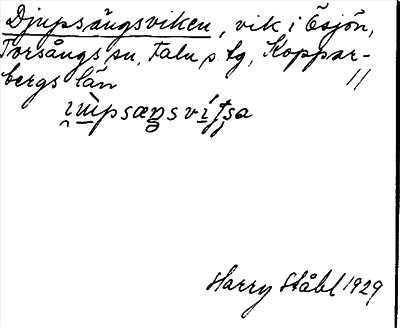 Djupsängsviken, vik i Ösjön,
Torsångs sn, Falu s. lg, Koppar-
bergs län //
Harry Ståhl 1929